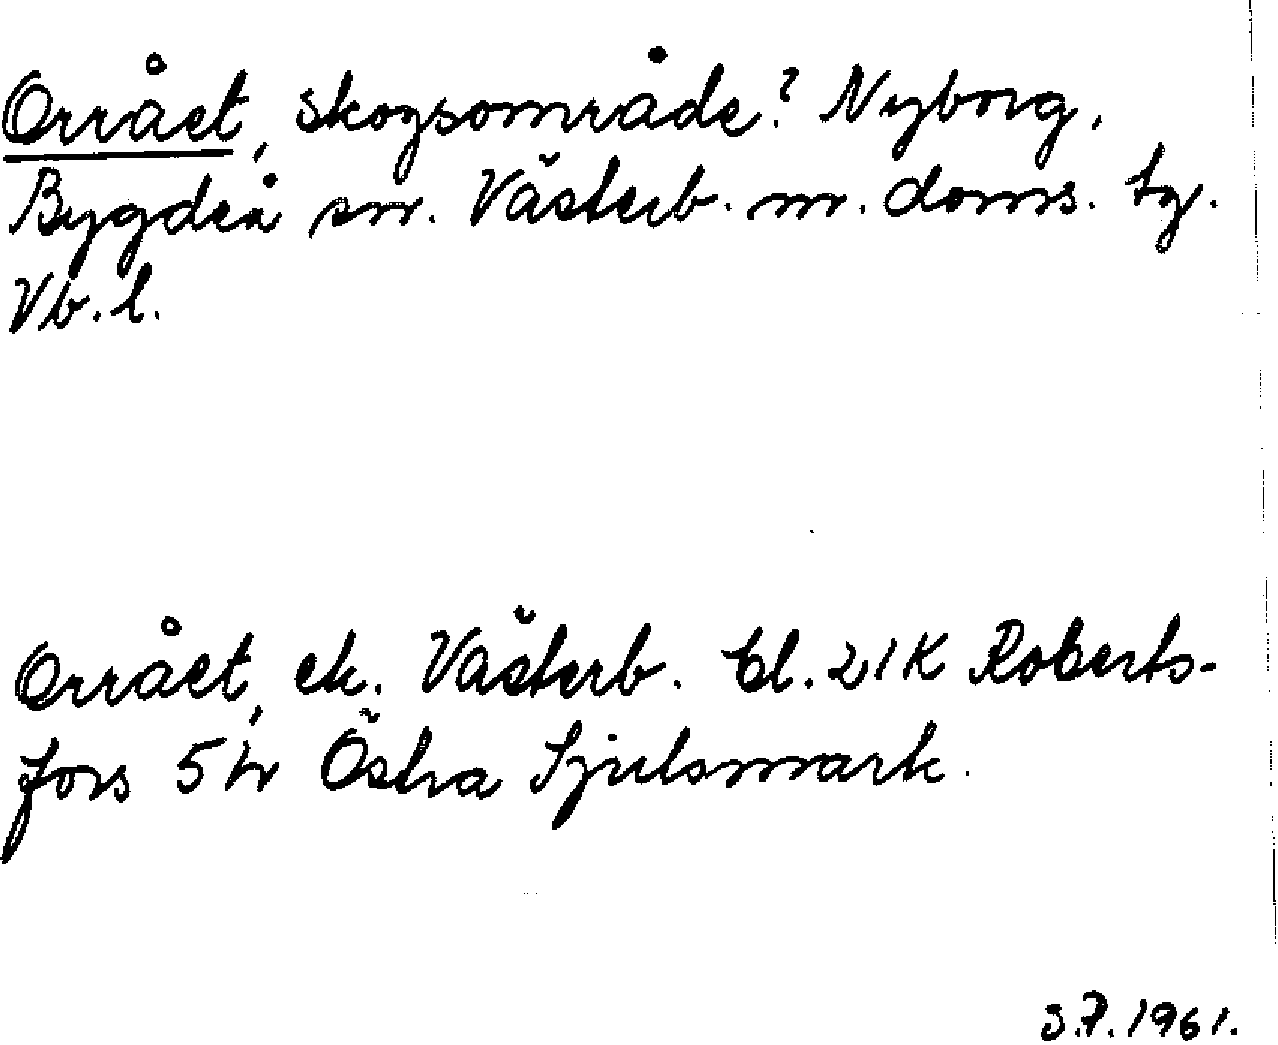 Orrået, skogsområde? Nyborg,
Bygdeå sn. Västerb. m. doms. tg.
Vb. l.
Orrået, ek. Västerb. bl. 21K Roberts-
fors 5 h Östra Sjulsmark.
3.7.1961.